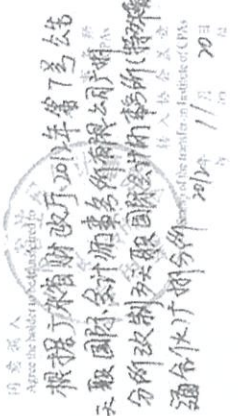 同意调入
Agree the holder to be transferred to
根据广东省财政厅2012年第7号公告
天职国际会计师事务所有限公司广州
分所改制为天职国际会计师事务所(特殊普
通合伙)广州分所
转入协会盖章
Stamp of the transfer-in Institute of CPAs
2012年 11月 20日